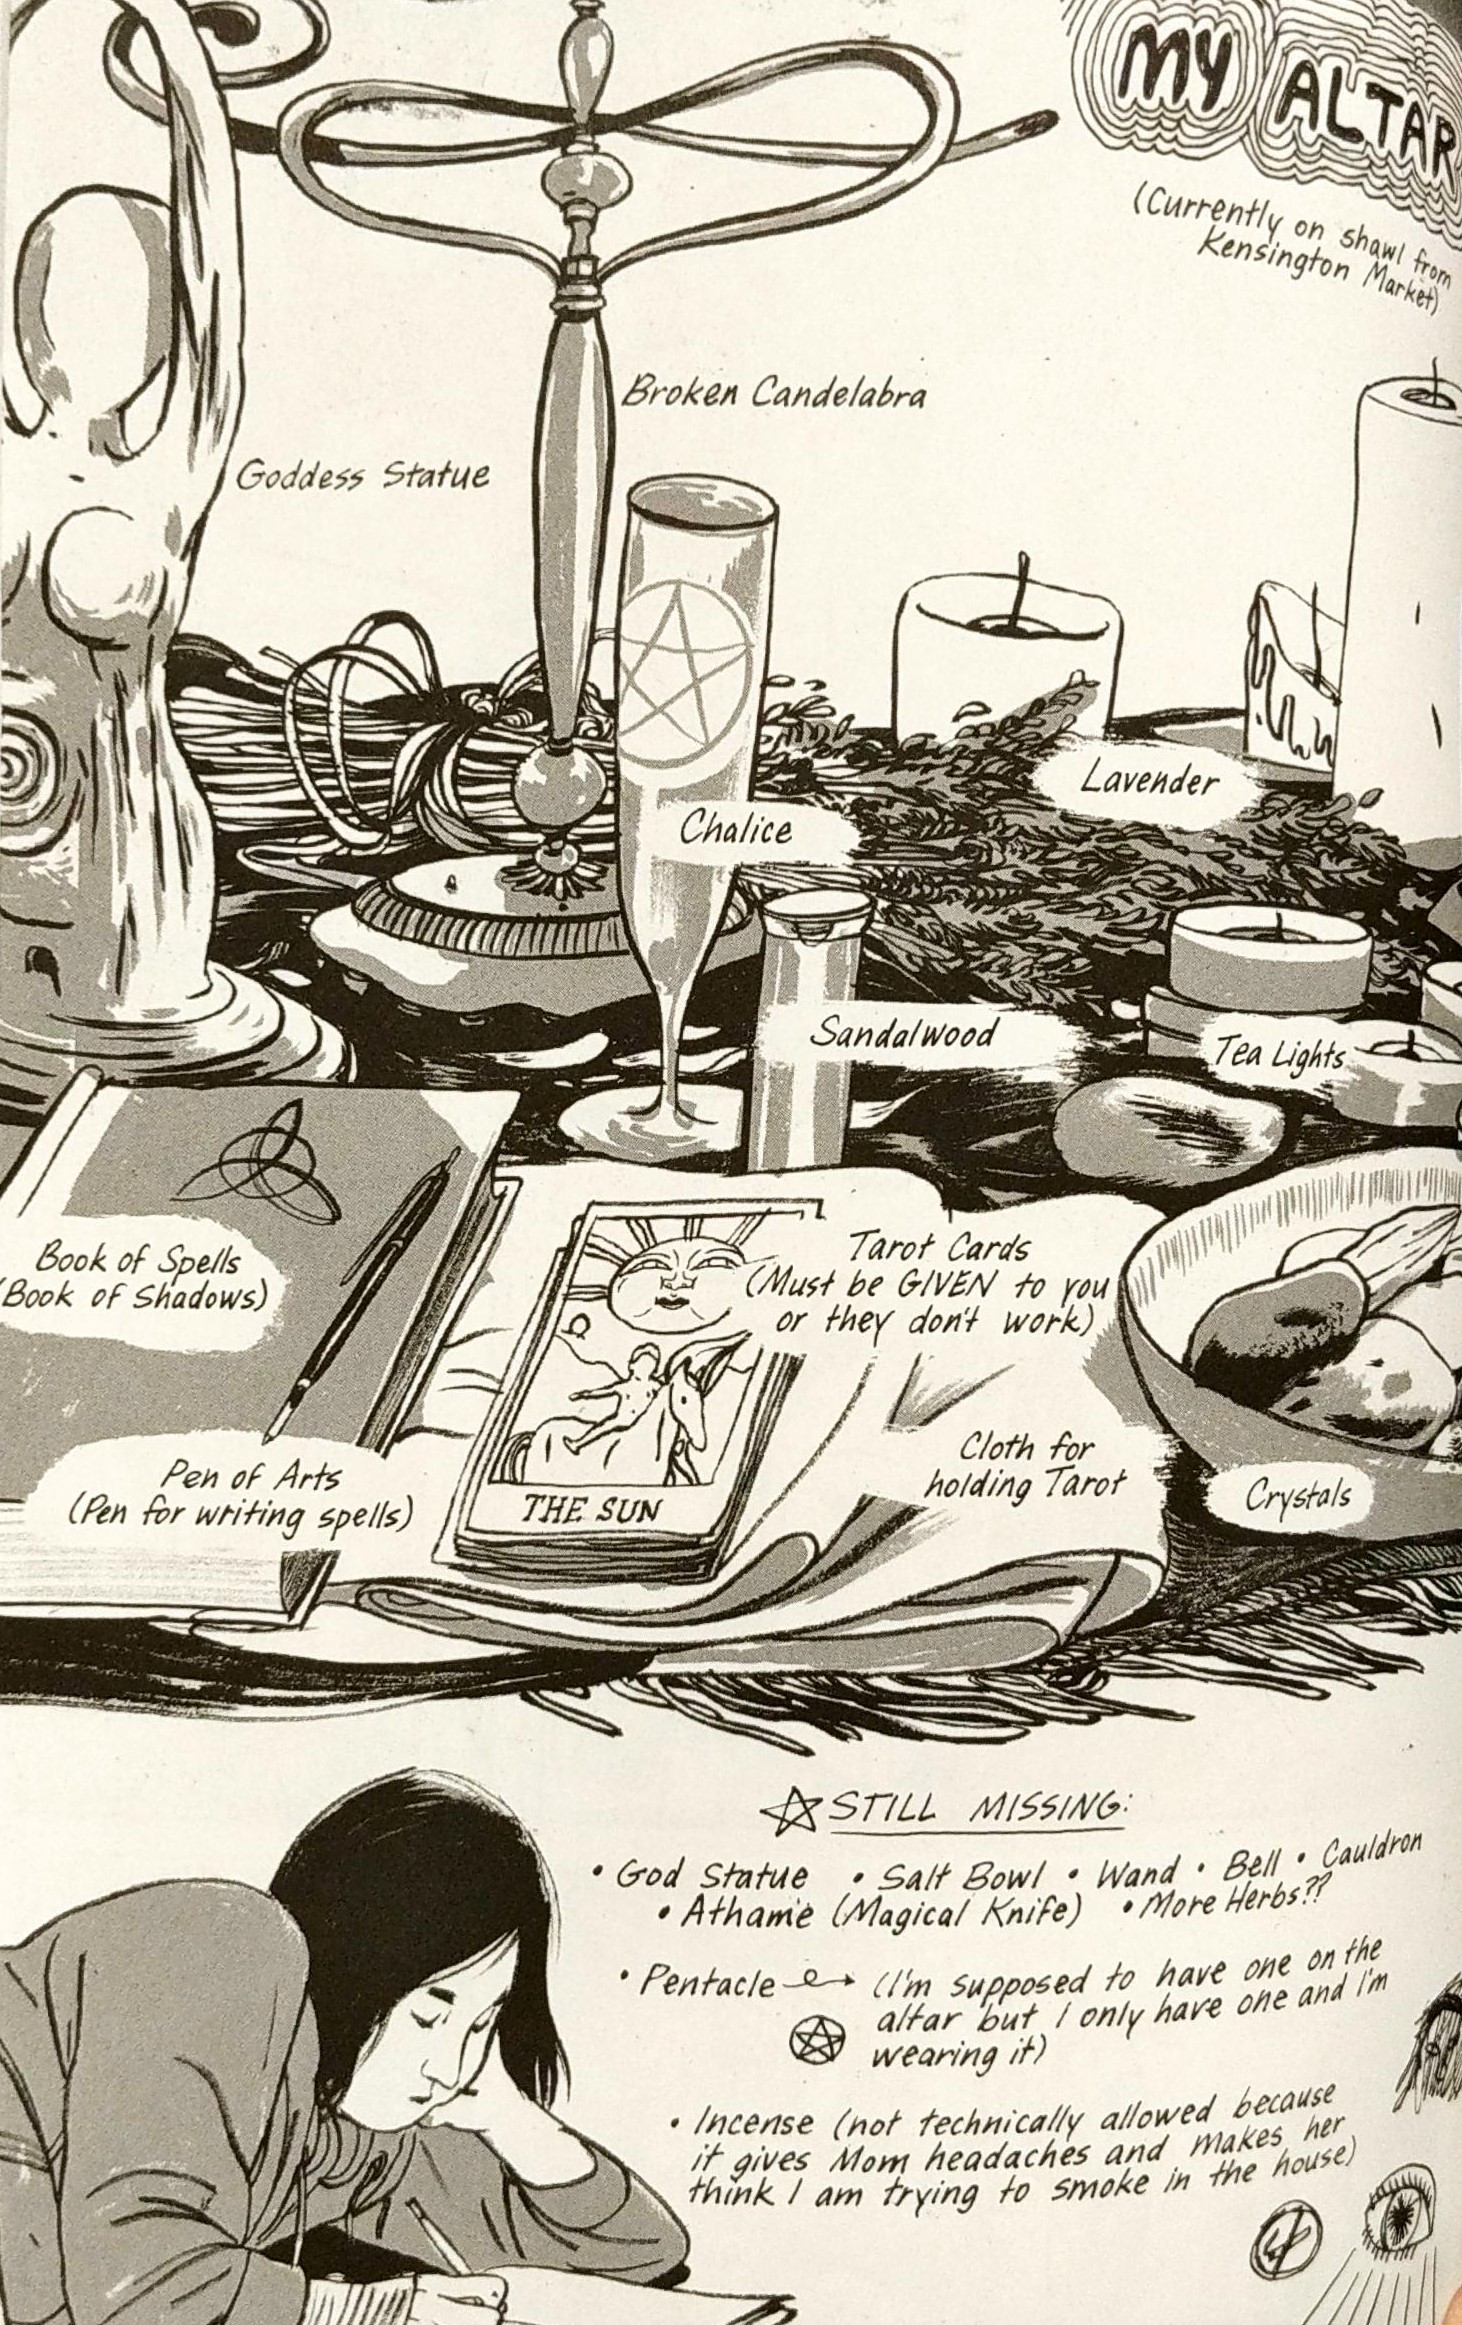 MY ALTAR
(Currently on shawl from
Kensington Market)
Broken Candelabra
Goddess Statue
Lavender
Chalice
Sandalwood
Tea Lights
Book of Spells
(Book of Shadows)
Tarot Cards
(Must be GIVEN to you
or they don't work)
Pen of Arts
(Pen for writing spells)
THE SUN
Cloth for
holding Tarot
Crystals
STILL MISSING:
• God Statue • Salt Bowl • Wand • Bell • Cauldron
• Athame (Magical Knife) • More Herbs??
• Pentacle (I'm supposed to have one on the
altar but I only have one and I'm
wearing it)
• Incense (not technically allowed because
it gives Mom headaches and makes her
think I am trying to smoke in the house)